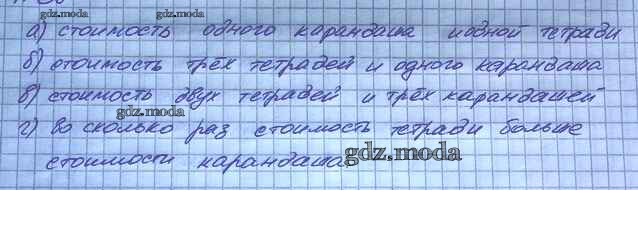 gdz.moda
а) стоимость одного карандаша и одной тетради
gdz.moda
б) стоимость трёх тетрадей и одного карандаша
в) стоимость двух тетрадей и трёх карандашей
gdz.moda
г) во сколько раз стоимость тетради больше
стоимости карандаша.
gdz.moda